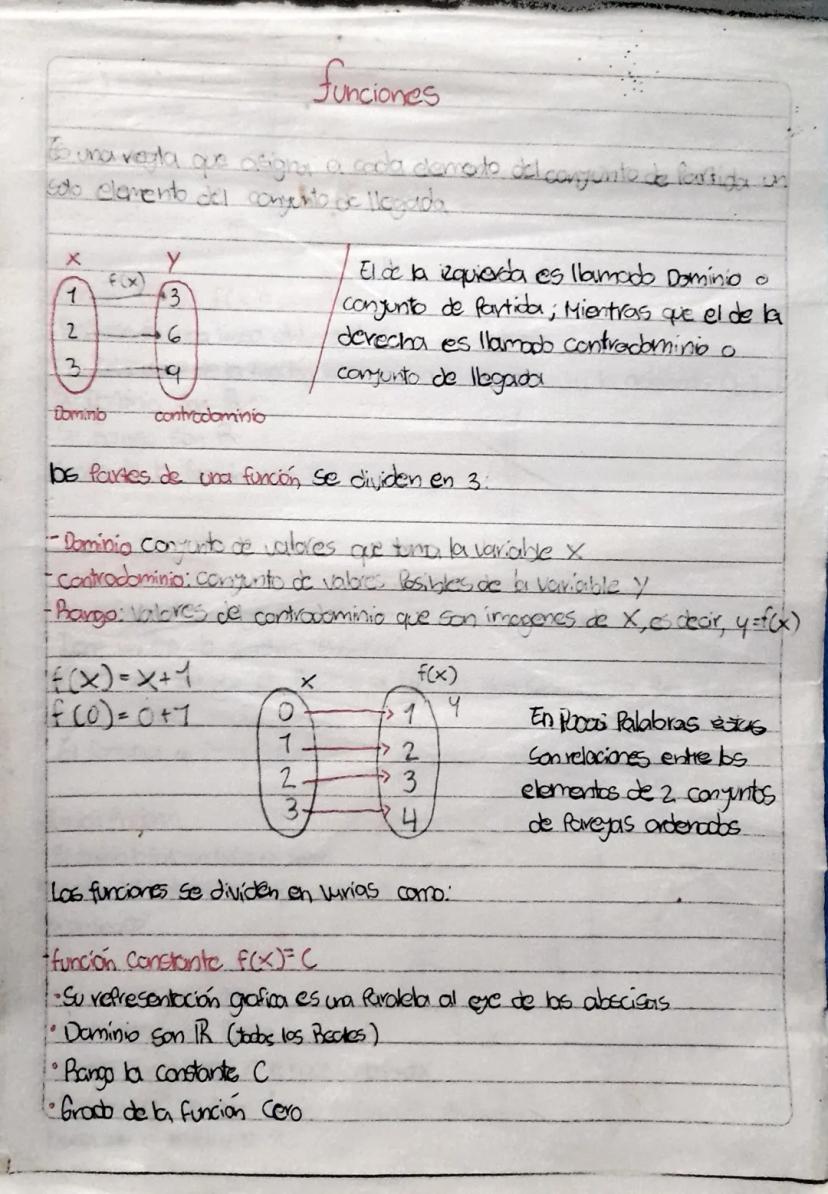 funciones
Es una regla que asigna a cada elemento del conjunto de Partida un
solo elemento del conjunto de llegada
X Y
f(x)
1 3
2 6
3 9
Dominio contradominio
El de la izquierda es llamado Dominio o
conjunto de Partida; Mientras que el de la
derecha es llamado contradominio o
conjunto de llegada
los Partes de una función, se dividen en 3:
- Dominio conjunto de valores que toma la variable X
- contradominio: conjunto de valores Posibles de la variable Y
- Rango: Valores del contradominio que son imagenes de X, es decir, y=f(x)
f(x) = x+1
f(0) = 0+1
x f(x)
y
0 1
1 2
2 3
3 4
En Pocas Palabras estas
son relaciones entre los
elementos de 2 conjuntos
de Parejas ordenados
Las funciones se dividen en varias como:
- función Constante f(x)=C
• Su representación grafica es una Paralela al eje de las abscisas
• Dominio son ℝ (todos los Reales)
• Rango la constante C
• Grado de la función Cero